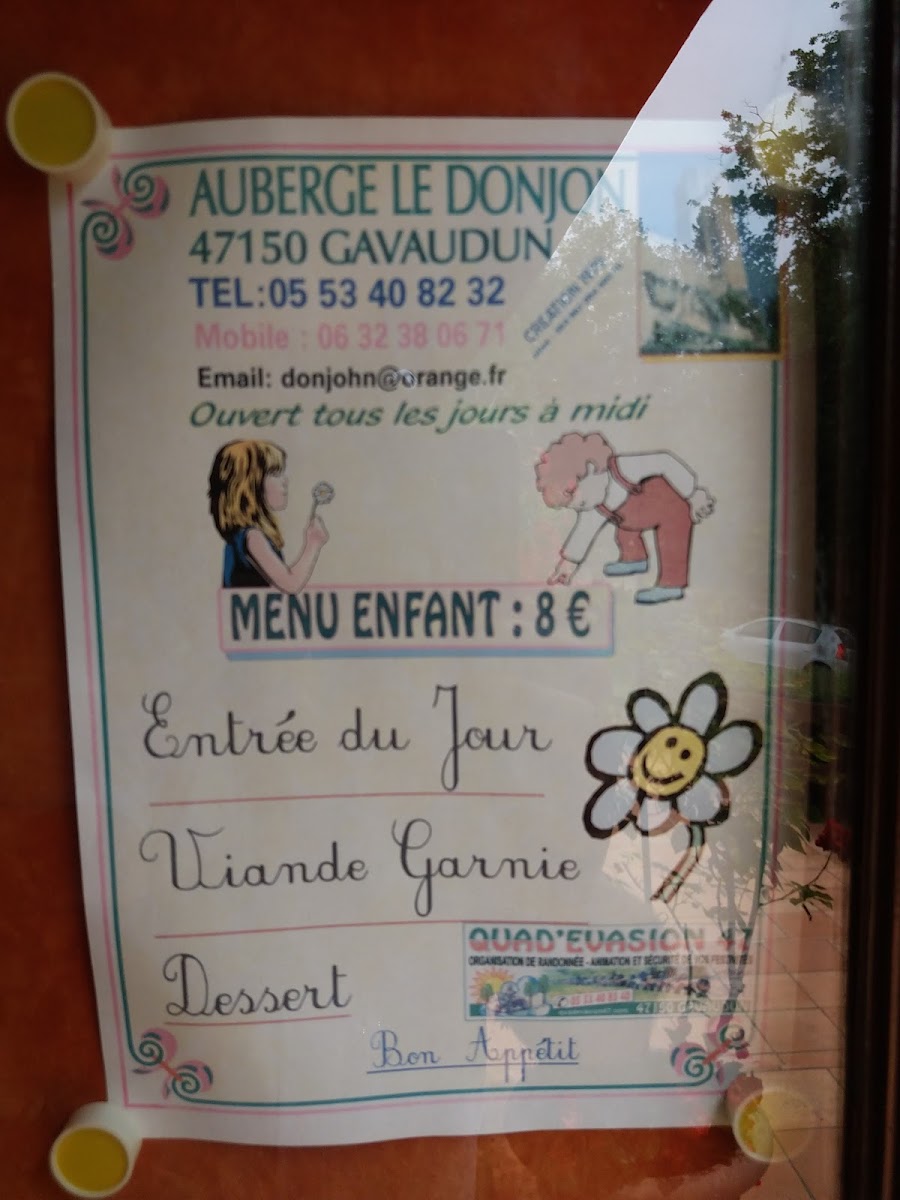 AUBERGE LE DONJON
47150 GAVAUDUN
TEL:05 53 40 82 32
Mobile : 06 32 38 06 71
CREATION
Email: donjohn@orange.fr
Ouvert tous les jours à midi
MENU ENFANT : 8 €
Entrée du Jour
Viande Garnie
Dessert
QUAD'EVASION 47
ORGANISATION DE RANDONNÉE - ANIMATION ET SÉCURITÉ DE VOS FESTIVITÉS
47150 GAVAUDUN
Bon Appétit